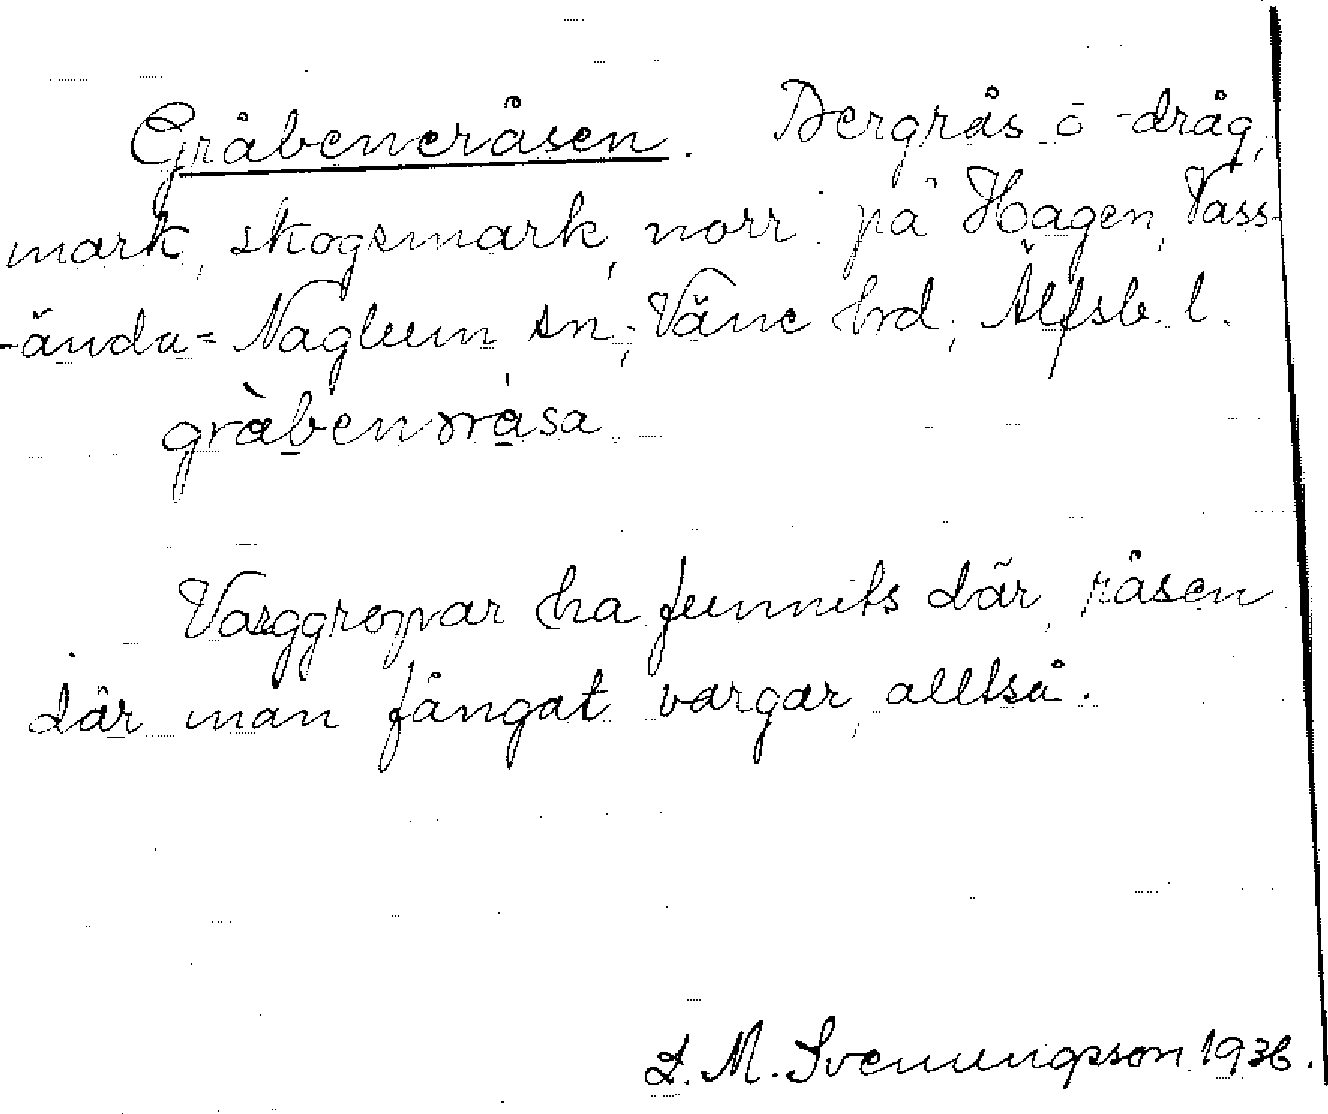 Gråbeneråsen. Bergrås o -dråg,
mark, skogsmark, norr på Hagen, Vass-
-ända= Naglum sn; Väne hrd; Älfsb. l.
gràbenəråsa
Varggropar ha funnits där, råsen
där man fångat vargar, alltså.
L. M. Svenungsson 1936.